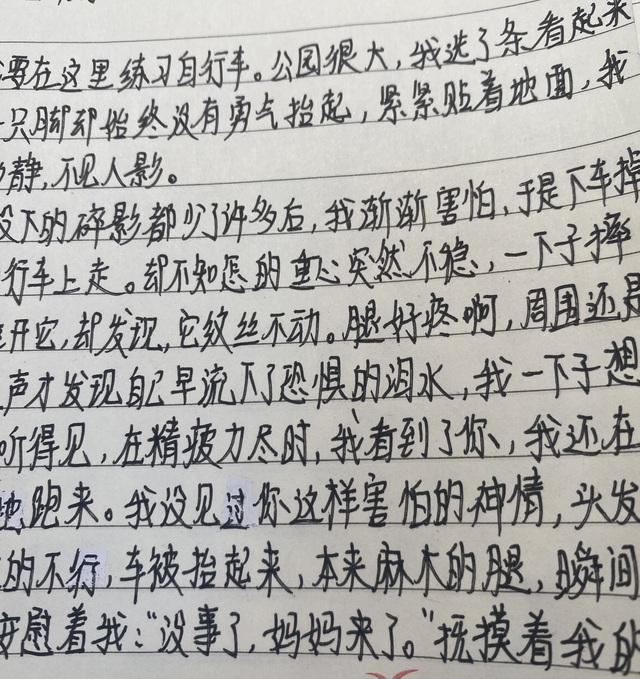 要在这里练习自行车。公园很大，我选了条看起来
一只脚却始终没有勇气抬起，紧紧贴着地面，我
静，不见人影。
投下的碎影都少了许多后，我渐渐害怕，于是下车掉
行车上走。却不知怎的重心突然不稳，一下子摔
开它，却发现，它纹丝不动。腿好疼啊，周围还是
声才发现自己早流下了恐惧的泪水，我一下子想
听得见，在精疲力尽时，我看到了你，我还在
地跑来。我没见过你这样害怕的神情，头发
的不行，车被抬起来，本来麻木的腿，瞬间
安慰着我：“没事了，妈妈来了。”抚摸着我的